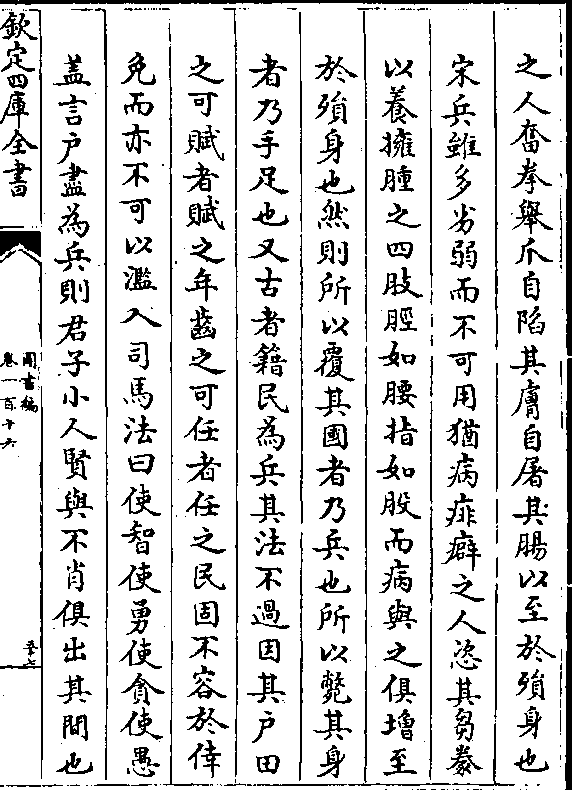 之人奮拳舉爪自陷其膚自屠其腸以至於殞身也
宋兵雖多劣弱而不可用猶病痱癖之人恣其芻豢
以養擁腫之四肢脛如腰指如股而病與之俱增至
於殞身也然則所以覆其國者乃兵也所以斃其身
者乃手足也又古者籍民為兵其法不過因其户田
之可賦者賦之年齒之可任者任之民固不容於倖
免而亦不可以濫入司馬法曰使智使勇使貪使愚
盖言户盡為兵則君子小人賢與不肖俱出其間也
欽定四庫全書
圖書編
卷一百十六